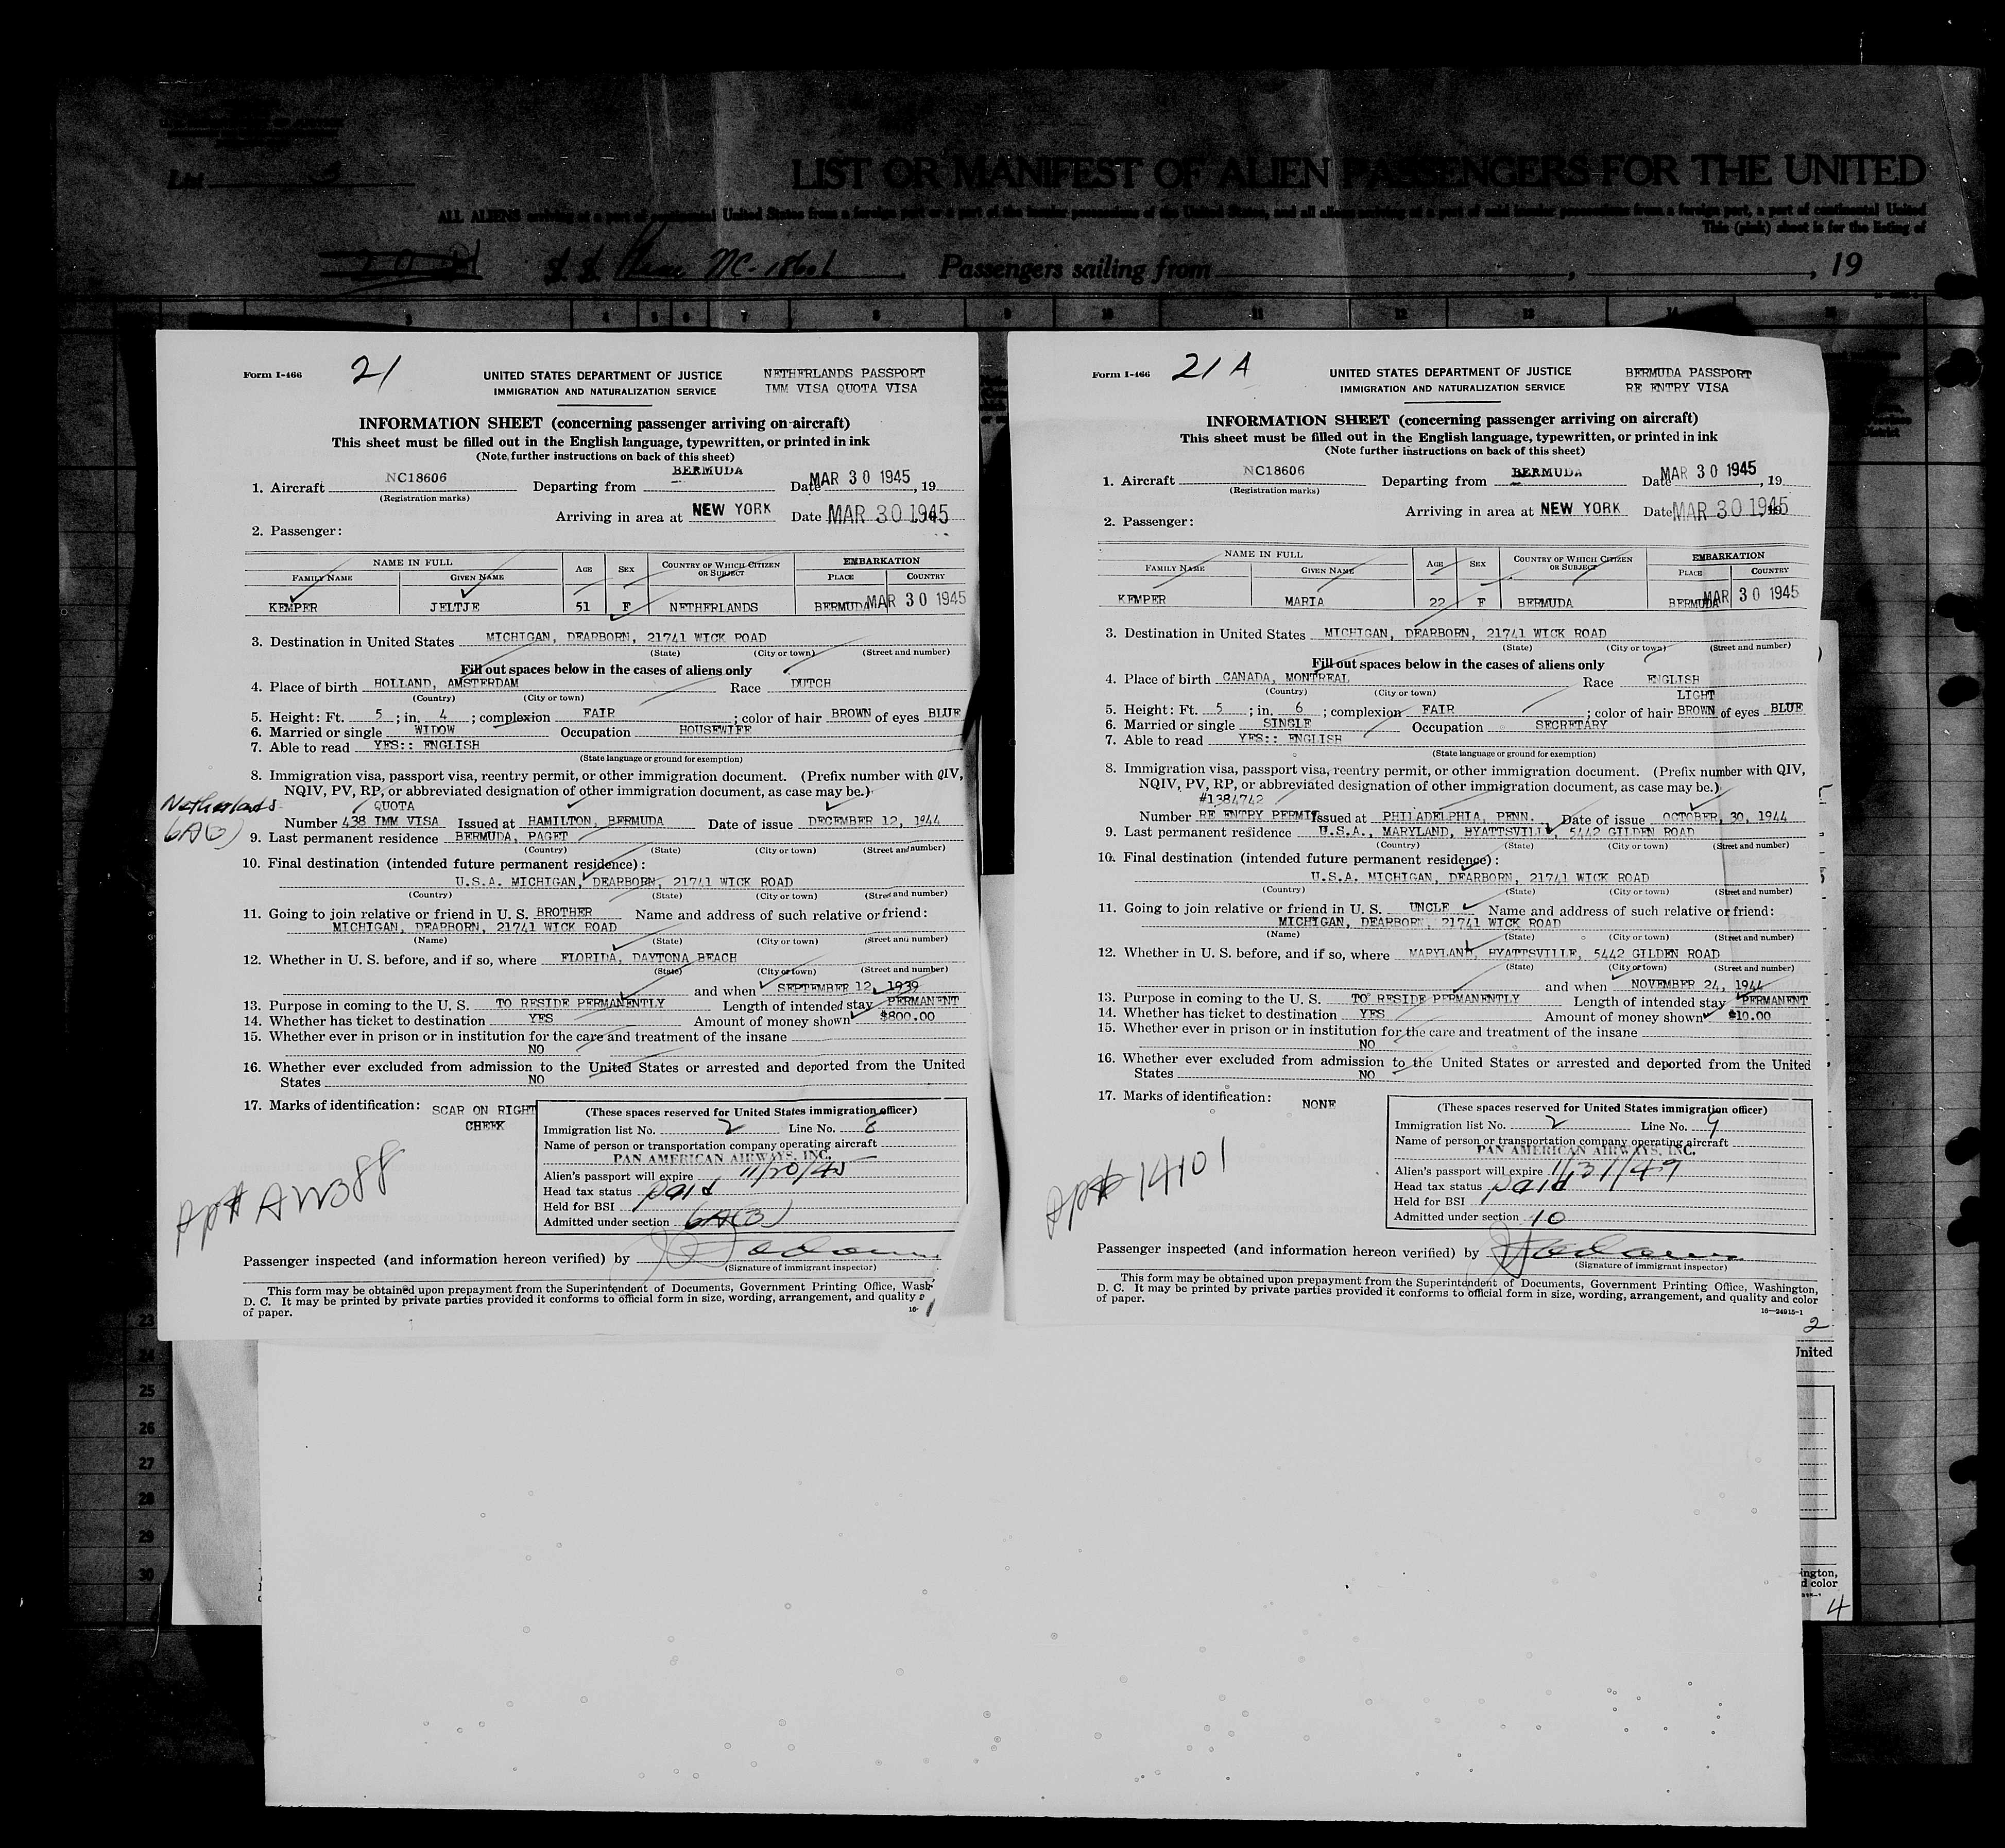 List
LIST OR MANIFEST OF ALIEN PASSENGERS FOR THE UNITED
This (pink) sheet is for the listing of
Passengers sailing from , , 19
Form I-466
21
UNITED STATES DEPARTMENT OF JUSTICE
IMMIGRATION AND NATURALIZATION SERVICE
NETHERLANDS PASSPORT
IMM VISA QUOTA VISA
INFORMATION SHEET (concerning passenger arriving on aircraft)
This sheet must be filled out in the English language, typewritten, or printed in ink
(Note further instructions on back of this sheet)
1. Aircraft NC18606 Departing from BERMUDA Date MAR 30 1945, 19
(Registration marks)
Arriving in area at NEW YORK Date MAR 30 1945
2. Passenger:
NAME IN FULL AGE SEX COUNTRY OF WHICH CITIZEN OR SUBJECT EMBARKATION
FAMILY NAME GIVEN NAME PLACE COUNTRY
KEMPER JELTJE 51 F NETHERLANDS BERMUDA MAR 30 1945
3. Destination in United States MICHIGAN, DEARBORN, 21741 WICK ROAD
(State) (City or town) (Street and number)
Fill out spaces below in the cases of aliens only
4. Place of birth HOLLAND, AMSTERDAM Race DUTCH
(Country) (City or town)
5. Height: Ft. 5 ; in. 4 ; complexion FAIR ; color of hair BROWN of eyes BLUE
6. Married or single WIDOW Occupation HOUSEWIFE
7. Able to read YES:: ENGLISH
(State language or ground for exemption)
8. Immigration visa, passport visa, reentry permit, or other immigration document. (Prefix number with QIV,
NQIV, PV, RP, or abbreviated designation of other immigration document, as case may be.)
Netherlands
6A(3)
QUOTA
Number 438 IMM VISA Issued at HAMILTON, BERMUDA Date of issue DECEMBER 12, 1944
9. Last permanent residence BERMUDA, PAGET
(Country) (State) (City or town) (Street and number)
10. Final destination (intended future permanent residence):
U.S.A. MICHIGAN, DEARBORN, 21741 WICK ROAD
(Country) (State) (City or town) (Street and number)
11. Going to join relative or friend in U. S. BROTHER Name and address of such relative or friend:
MICHIGAN, DEARBORN, 21741 WICK ROAD
(Name) (State) (City or town) (Street and number)
12. Whether in U. S. before, and if so, where FLORIDA, DAYTONA BEACH
(State) (City or town) (Street and number)
and when SEPTEMBER 12, 1939
13. Purpose in coming to the U. S. TO RESIDE PERMANENTLY Length of intended stay PERMANENT
14. Whether has ticket to destination YES Amount of money shown $800.00
15. Whether ever in prison or in institution for the care and treatment of the insane
NO
16. Whether ever excluded from admission to the United States or arrested and deported from the United
States NO
17. Marks of identification: SCAR ON RIGHT
CHEEK
(These spaces reserved for United States immigration officer)
Immigration list No. 2 Line No. 8
Name of person or transportation company operating aircraft
PAN AMERICAN AIRWAYS, INC.
Alien's passport will expire 11/20/45
Head tax status paid
Held for BSI
Admitted under section 6A(3)
pp# AW388
Passenger inspected (and information hereon verified) by
(Signature of immigrant inspector)
This form may be obtained upon prepayment from the Superintendent of Documents, Government Printing Office, Wash
D. C. It may be printed by private parties provided it conforms to official form in size, wording, arrangement, and quality
of paper.
16-
1
Form I-466
21 A
UNITED STATES DEPARTMENT OF JUSTICE
IMMIGRATION AND NATURALIZATION SERVICE
BERMUDA PASSPORT
RE ENTRY VISA
INFORMATION SHEET (concerning passenger arriving on aircraft)
This sheet must be filled out in the English language, typewritten, or printed in ink
(Note further instructions on back of this sheet)
1. Aircraft NC18606 Departing from BERMUDA Date MAR 30 1945, 19
(Registration marks)
Arriving in area at NEW YORK Date MAR 30 1945
2. Passenger:
NAME IN FULL AGE SEX COUNTRY OF WHICH CITIZEN OR SUBJECT EMBARKATION
FAMILY NAME GIVEN NAME PLACE COUNTRY
KEMPER MARIA 22 F BERMUDA BERMUDA MAR 30 1945
3. Destination in United States MICHIGAN, DEARBORN, 21741 WICK ROAD
(State) (City or town) (Street and number)
Fill out spaces below in the cases of aliens only
4. Place of birth CANADA, MONTREAL Race ENGLISH
(Country) (City or town)
LIGHT
5. Height: Ft. 5 ; in. 6 ; complexion FAIR ; color of hair BROWN of eyes BLUE
6. Married or single SINGLE Occupation SECRETARY
7. Able to read YES:: ENGLISH
(State language or ground for exemption)
8. Immigration visa, passport visa, reentry permit, or other immigration document. (Prefix number with QIV,
NQIV, PV, RP, or abbreviated designation of other immigration document, as case may be.)
#1384742
Number RE ENTRY PERMIT Issued at PHILADELPHIA, PENN. Date of issue OCTOBER, 30, 1944
9. Last permanent residence U.S.A., MARYLAND, HYATTSVILLE, 5442 GILDEN ROAD
(Country) (State) (City or town) (Street and number)
10. Final destination (intended future permanent residence):
U.S.A. MICHIGAN, DEARBORN, 21741 WICK ROAD
(Country) (State) (City or town) (Street and number)
11. Going to join relative or friend in U. S. UNCLE Name and address of such relative or friend:
MICHIGAN, DEARBORN, 21741 WICK ROAD
(Name) (State) (City or town) (Street and number)
12. Whether in U. S. before, and if so, where MARYLAND, HYATTSVILLE, 5442 GILDEN ROAD
(State) (City or town) (Street and number)
and when NOVEMBER 24, 1944
13. Purpose in coming to the U. S. TO RESIDE PERMANENTLY Length of intended stay PERMANENT
14. Whether has ticket to destination YES Amount of money shown $10.00
15. Whether ever in prison or in institution for the care and treatment of the insane
NO
16. Whether ever excluded from admission to the United States or arrested and deported from the United
States NO
17. Marks of identification: NONE
(These spaces reserved for United States immigration officer)
Immigration list No. 2 Line No. 9
Name of person or transportation company operating aircraft
PAN AMERICAN AIRWAYS, INC.
Alien's passport will expire 1/31/49
Head tax status paid
Held for BSI
Admitted under section 10
pp# 14101
Passenger inspected (and information hereon verified) by
(Signature of immigrant inspector)
This form may be obtained upon prepayment from the Superintendent of Documents, Government Printing Office, Washington,
D. C. It may be printed by private parties provided it conforms to official form in size, wording, arrangement, and quality and color
of paper.
16—24915-1
2
23
24
25
26
27
28
29
30
United
ington,
d color
4